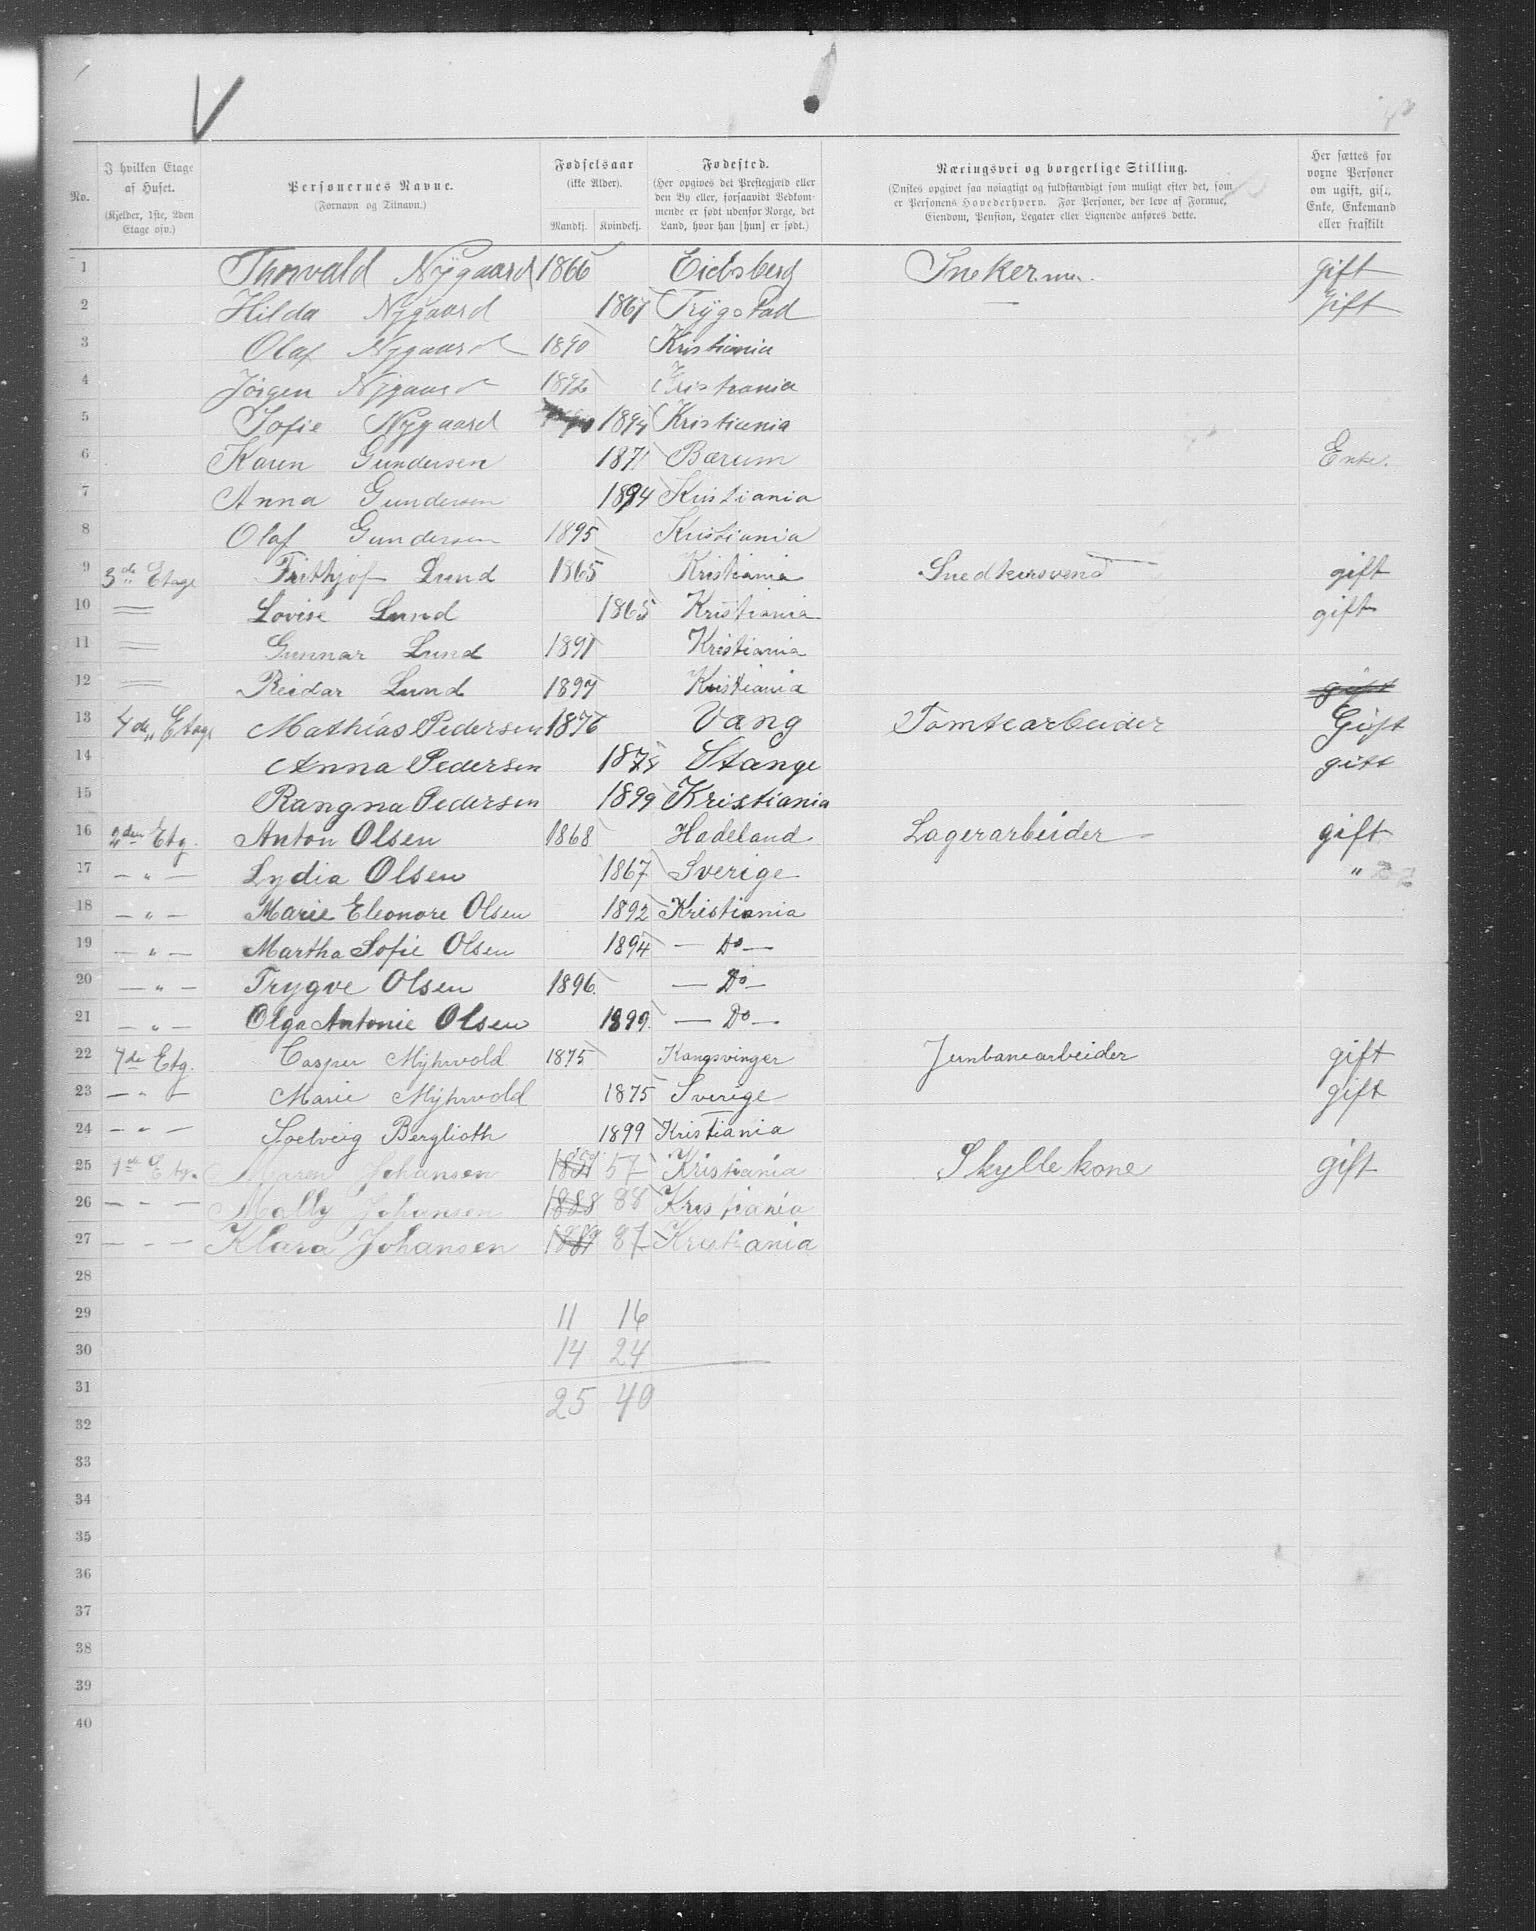 No.
I hvilken Etage af Huset. (Kjelder, 1ste, 2den Etage osv.)
Personernes Navne. (Fornavn og Tilnavn.)
Fødselsaar (ikke Alder). Mandkj. Kvindekj.
Fødested. (Her opgives det Prestegjæld eller den By eller, forsaavidt Vedkommende er født udenfor Norge, det Land, hvor han [hun] er født.)
Næringsvei og borgerlige Stilling. (Ønskes opgivet saa nøiagtigt og fuldstændigt som muligt efter det, som er Personens Hovederhverv. For Personer, der leve af Formue, Eiendom, Pension, Legater eller Lignende anføres dette.
Her sættes for voxne Personer om ugift, gift, Enke, Enkemand eller fraskilt
1 Thorvald Nÿgaard 1866 Eidsberg gift
2 Hilda Nygaard 1867 Trÿgstad gift
3 Olaf Nygaard 1890 Kristiania
4 Jørgen Nygaard 1892 Kristiania
5 Sofie Nygaard 1894 Kristiania
6 Karen Gundersen 1871 Bærum Enke.
7 Anna Gundersen 1894 Kristiania
8 Olaf Gundersen 1895 Kristiania
9 3de Etage Frithjof Lund 1865 Kristiania Snedkersvend gift
10 Lovise Lund 1865 Kristiania gift
11 Gunnar Lund 1891 Kristiania
12 Reidar Lund 1897 Kristiania gift
13 4de Etage Mathias Pedersen 1876 Vang Tomtearbeider Gift
14 Anna Pedersen 1875 Stange gift
15 Rangna Pedersen 1899 Kristiania
16 2den Etg. Anton Olsen 1868 Hadeland Lagerarbeider gift
17 — " — Lydia Olsen 1867 Sverige "
18 — " — Marie Eleonore Olsen 1892 Kristiania
19 — " — Martha Sofie Olsen 1894 — Do —
20 — " — Trygve Olsen 1896 — Do —
21 — " — Olga Antonie Olsen 1899 — Do —
22 4de Etg. Casper Mÿhrvold 1875 Kongsvinger Jernbanearbeider gift
23 — " — Marie Mÿhrvold 1875 Sverige gift
24 — " — Soelveig Berglioth 1899 Kristiania
25 1ste Etg. Maren Johansen 1857 57 Kristiania Skyllekone gift
26 — — — Mally Johansen 1888 88 Kristiania
27 — — — Klara Johansen 1887 87 Kristiania
28
29 11 16
30 14 24
31 25 40
32
33
34
35
36
37
38
39
40